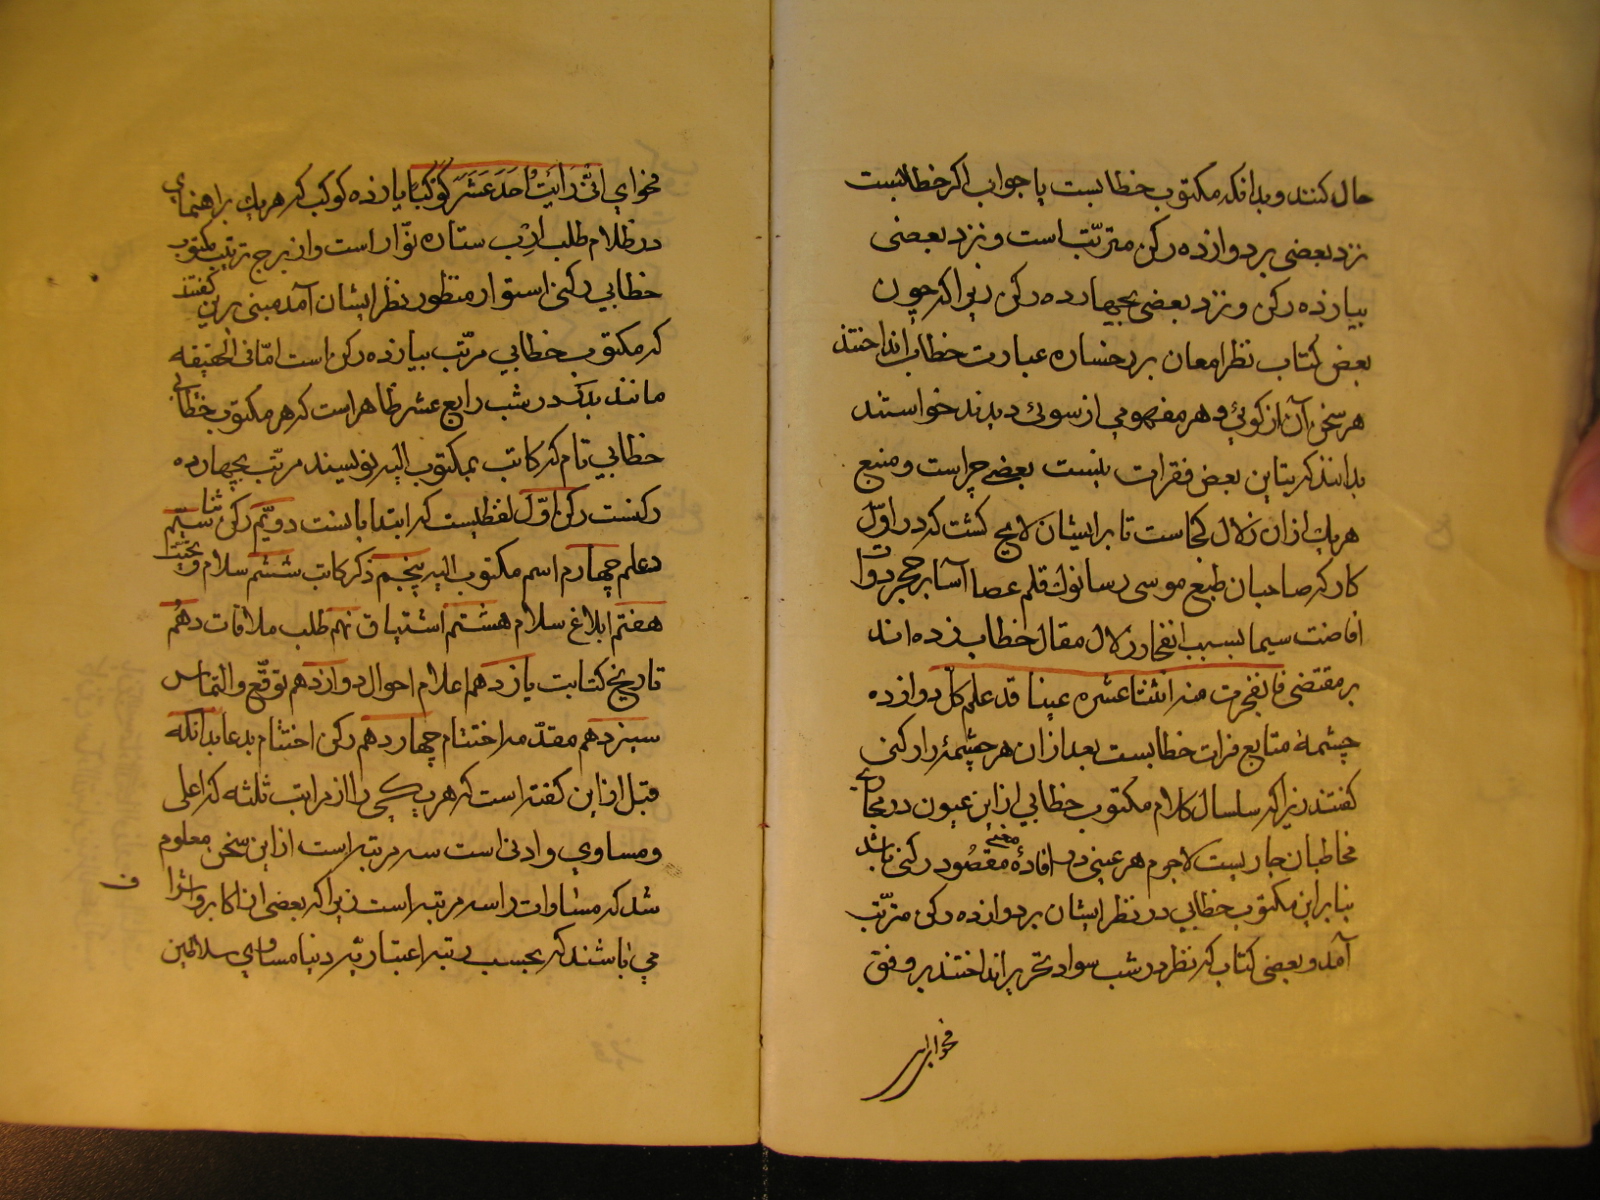 حال کنند و بدانکه مکتوب خطابست یا جواب اکر خطابست
نزد بعضی بر دوازده رکن مترتّب است و نزد بعضی
بیازده رکن و نزد بعضی بچهارده رکن زیراکه چون
بعض کتاب نظر امعان بر رخساره عبارت خطاب انداختند
هر سخن آن از کوئی و هر مفهومی از سوئی دیدند خواستند
بدانند که تباین بعض فقرات بنسبت بعضی چراست و منبع
هر یك ازان زلال کجاست تا بر ایشان لایح کشت که در اوّل
کار که صاحبان طبع موسی رسا نوك قلم عصا آسا بر حجر دوات
افاضت سیما بسبب انفجار زلال مقال خطاب زده اند
بر مقتضی فانفجرت منه اثنتا عشره عینا قد علم کلّ دوازده
چشمهٔ متابع فرات خطابست بعد ازان هر چشمهٔ را رکنی
کفتند زیراکه سلسال کلام مکتوب خطابی ازین عیون در مجاری
مخاطبان جاریست لاجرم هر عینی در افادهٔ معنی مقصُود رکنی باشد
بنابراین مکتوب خطابی در نظر ایشان بر دوازده رکن مترتّب
آمد و بعضی کتاب که نظر در شب سواد تحریر انداختند بر وفق
فحوای
فحوای انّی رَایتُ اَحَدَ عَشَرَ کَوکَبًا یازده کوکب که هر یك براهنمای
در ظلام طلب ادب ستاره نوّار است و از برج ترتیب مکتوب
خطابی رکنی استوار منظور نظر ایشان آمد مبنی برین کفتند
که مکتوب خطابی مرتّب بیازده رکن است امّا فی الحقیقه
مانند بدر که در شب رابع عشر ظاهر است که هر مکتوب خطابی
خطابی تام که کاتب بمکتوب الیه نویسند مرتّب بچهارده
رکنست رکن اوّل لفظیست که ابتدا بانست دویّم رکن ثنا سیّم
دعا چهارم اسم مکتوب الیه پنجم ذکر کاتب ششم سلام و تحیّت
هفتم ابلاغ سلام هشتم اشتیاق نهم طلب ملاقات دهُم
تاریخ کتابت یازدهم اعلام احوال دوازدهم توقّع و التماس
سیزدهم مقدّمه اختتام چهاردهم رکن اختتام بدعا بدانکه
قبل ازین کفته است که هر یکی را از مراتب ثلثه که اعلی
و مساوی و ادنی است سه مرتبه است ازین سخن معلوم
شد که مساوات را سه مرتبه است زیراکه بعضی از اکابر و اشراف
می باشند که بحسب رتبه اعتباریّه دنیا مساوی سلاطین